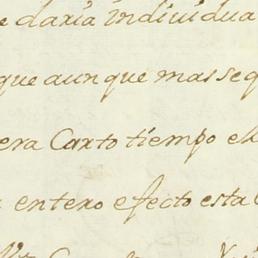 e daria individua
que aunque mas seq
era Carto tiempo el
entero efecto esta